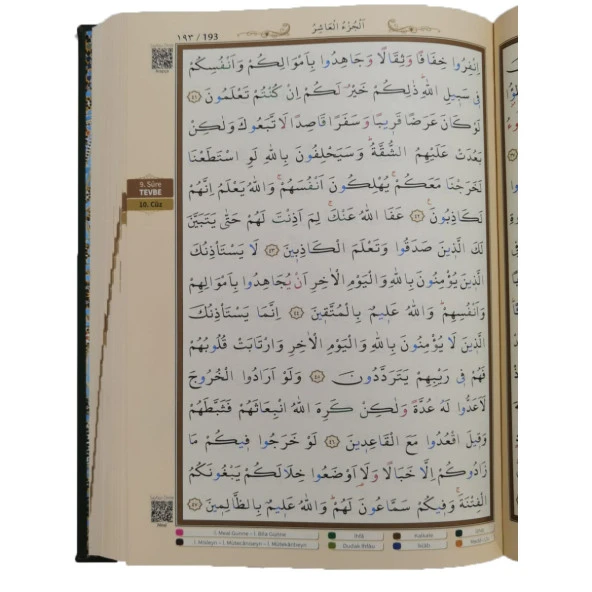 ١٩٣ / 193
اَلْجُزْءُ الْعَاشِرُ
اِنْفِرُوا خِفَافًا وَثِقَالًا وَجَاهِدُوا بِاَمْوَالِكُمْ وَاَنْفُسِكُمْ
فٖى سَبٖيلِ اللّٰهِ ذٰلِكُمْ خَيْرٌ لَكُمْ اِنْ كُنْتُمْ تَعْلَمُونَ ﴿٤١﴾
لَوْ كَانَ عَرَضًا قَرٖيبًا وَسَفَرًا قَاصِدًا لَاتَّبَعُوكَ وَلٰكِنْ
بَعُدَتْ عَلَيْهِمُ الشُّقَّةُ وَسَيَحْلِفُونَ بِاللّٰهِ لَوِ اسْتَطَعْنَا
لَخَرَجْنَا مَعَكُمْ يُهْلِكُونَ اَنْفُسَهُمْ وَاللّٰهُ يَعْلَمُ اِنَّهُمْ
لَكَاذِبُونَ ﴿٤٢﴾ عَفَا اللّٰهُ عَنْكَ لِمَ اَذِنْتَ لَهُمْ حَتّٰى يَتَبَيَّنَ
لَكَ الَّذٖينَ صَدَقُوا وَتَعْلَمَ الْكَاذِبٖينَ ﴿٤٣﴾ لَا يَسْتَأْذِنُكَ
الَّذٖينَ يُؤْمِنُونَ بِاللّٰهِ وَالْيَوْمِ الْاٰخِرِ اَنْ يُجَاهِدُوا بِاَمْوَالِهِمْ
وَاَنْفُسِهِمْ وَاللّٰهُ عَلٖيمٌ بِالْمُتَّقٖينَ ﴿٤٤﴾ اِنَّمَا يَسْتَأْذِنُكَ
الَّذٖينَ لَا يُؤْمِنُونَ بِاللّٰهِ وَالْيَوْمِ الْاٰخِرِ وَارْتَابَتْ قُلُوبُهُمْ
فَهُمْ فٖى رَيْبِهِمْ يَتَرَدَّدُونَ ﴿٤٥﴾ وَلَوْ اَرَادُوا الْخُرُوجَ
لَاَعَدُّوا لَهُ عُدَّةً وَلٰكِنْ كَرِهَ اللّٰهُ انْبِعَاثَهُمْ فَثَبَّطَهُمْ
وَقٖيلَ اقْعُدُوا مَعَ الْقَاعِدٖينَ ﴿٤٦﴾ لَوْ خَرَجُوا فٖيكُمْ مَا
زَادُوكُمْ اِلَّا خَبَالًا وَلَاَوْضَعُوا خِلَالَكُمْ يَبْغُونَكُمُ
الْفِتْنَةَ وَفٖيكُمْ سَمَّاعُونَ لَهُمْ وَاللّٰهُ عَلٖيمٌ بِالظَّالِمٖينَ ﴿٤٧﴾
9. Sûre
TEVBE
10. Cüz
Meal